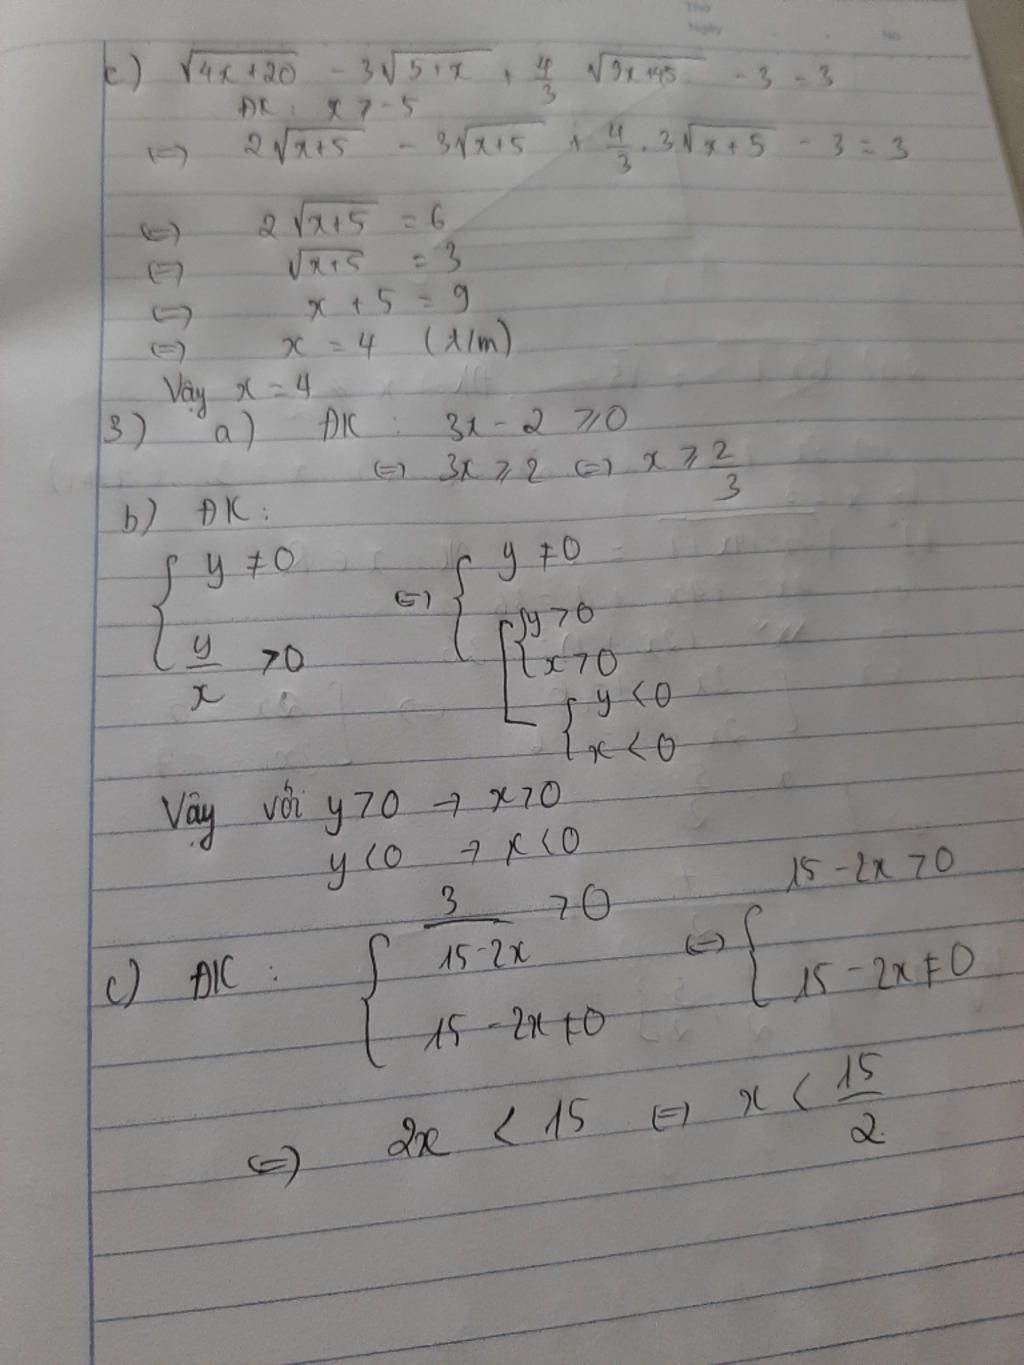 Thứ
Ngày No.
c) √(4x+20) - 3√(5+x) + 4/3 √(9x+45) - 3 = 3
ĐK: x > -5
<=> 2√(x+5) - 3√(x+5) + 4/3 . 3√(x+5) - 3 = 3
<=> 2√(x+5) = 6
<=> √(x+5) = 3
<=> x + 5 = 9
<=> x = 4 (t/m)
Vậy x = 4
3) a) ĐK: 3x - 2 ⩾ 0
<=> 3x ⩾ 2 <=> x ⩾ 2/3
b) ĐK:
{ y ≠ 0 ; y/x > 0 <=> { y ≠ 0 ; [ { y > 0 ; x > 0 ; { y < 0 ; x < 0
Vậy với y > 0 → x > 0
y < 0 → x < 0
c) ĐK: { 3/(15-2x) > 0 ; 15 - 2x ≠ 0 <=> { 15 - 2x > 0 ; 15 - 2x ≠ 0
<=> 2x < 15 <=> x < 15/2